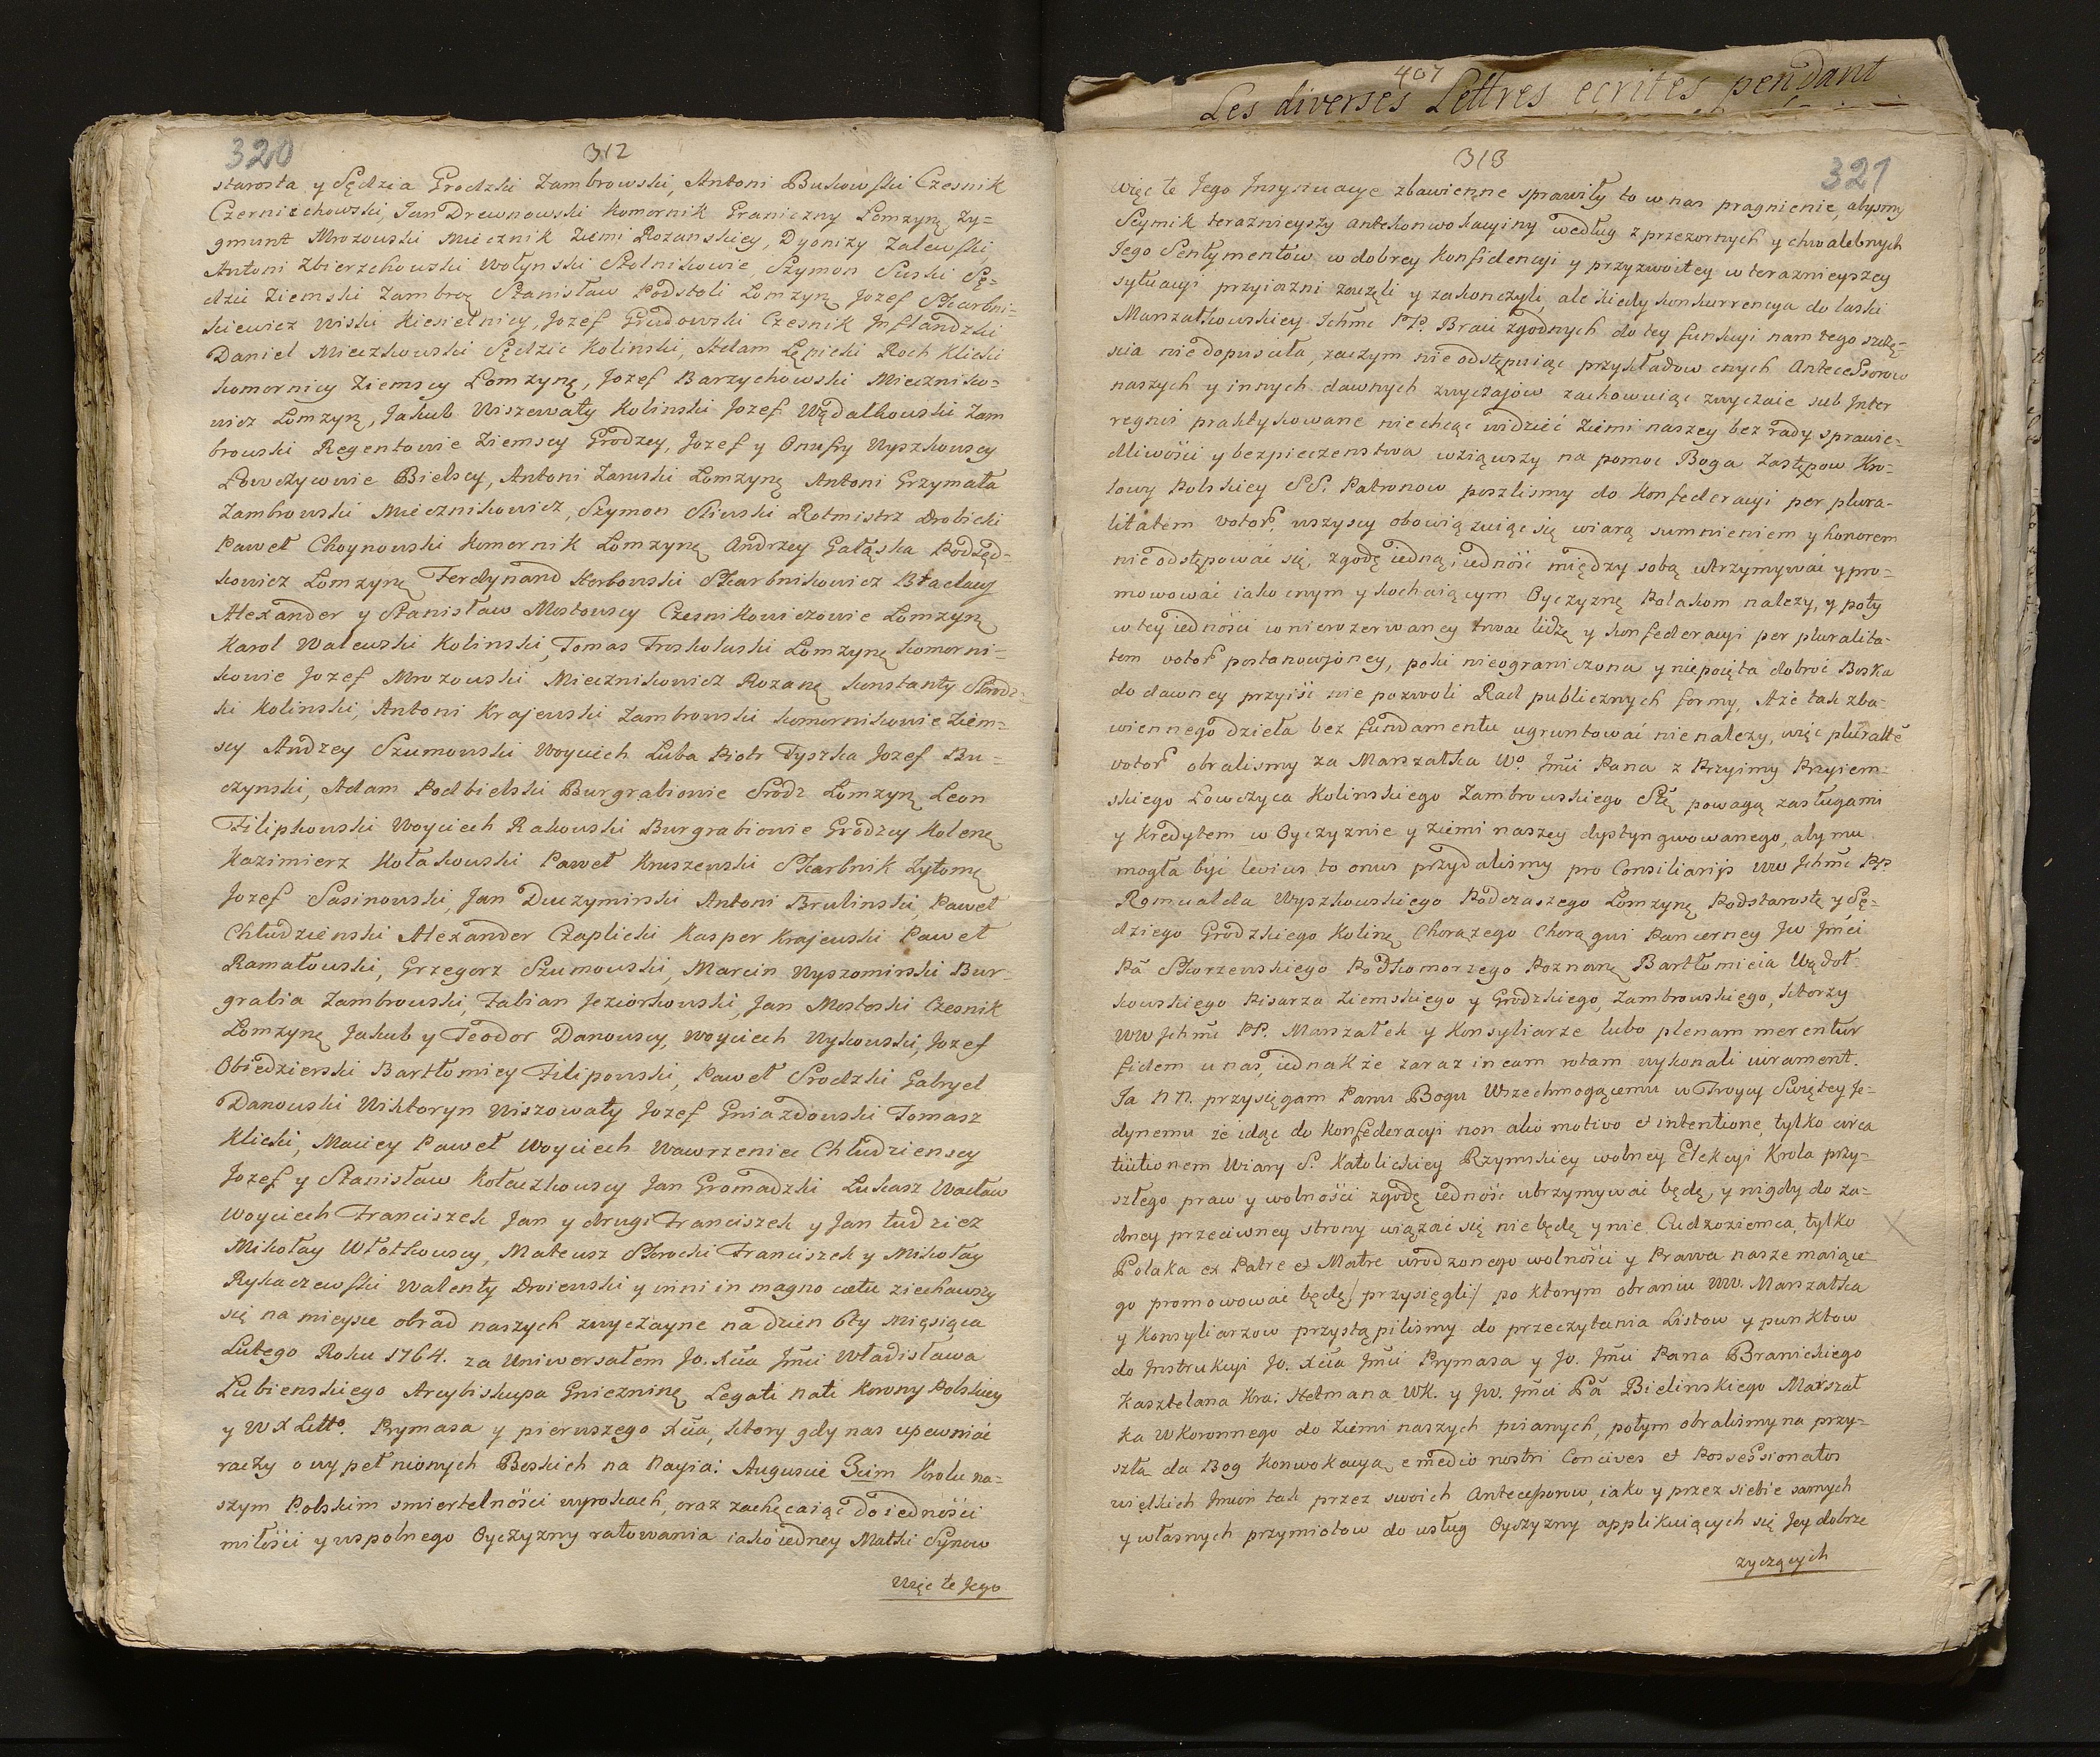 320
312
starosta y Sędzia Grodzki Zambrowski, Antoni Bukowski Czesnik
Czerniechowski, Jan Drewnowski Komornik Graniczny Łomzynę Zy=
gmunt Mrozowski Miecznik Ziemi Rozanskiey, Dyonizy Zalewski,
Antoni Zbierzchowski Wołynski Stolnikowie, Szymon Suski Sę=
dzic Ziemski Zambroę Stanisław Podstoli Łomzynę Jozef Skarbni=
kiewicz Wiski Kiesielnicy, Jozef Grudowski Czesnik Inflandzki
Daniel Mieczkowski Sędzic Kolinski, Adam Łępicki Roch Klicki
Komornicy Ziemscy Łomzynę, Jozef Barzychowski Miecziko=
wicz Łomzynę, Jakub Wiszowaty Kolinski Jozef Wądałkowski Zam
browski Regentowie Ziemscy Grodzcy, Jozef y Onufry Wyszkowscy
Łowczywie Bielscy, Antoni Zaruski Łomzynę Antoni Grzymała
Zambrowski Miecznikowicz, Szymon Sliwski Rotmistrz Drohicki
Paweł Choynowski Komornik Łomzynę Andrzey Gałąska Podsęd=
kowicz Łomzynę Ferdynand Horbowski Skarbnikowicz Bracławs
Alexander y Stanisław Mostowscy Czesnikowiczowie Łomzynę
Karol Walewski Kolinski, Tomas Troskolaski Łomzynę komorni=
kowie Jozef Mrozowski Miecznikowicz Rozanę Konstanty
ki Kolinski, Antoni Krajewski Zambrowski komornikowie Ziem=
scy Andrzey Szumowski Woyciech Luba Piotr Tyszka Jozef Bu=
czynski, Adam Podbielski Burgrabiowie Grodz Łomzynę Leon
Filipkowski Woyciech Rakowski Burgrabiowie Grodzcy Kolenę
Kazimierz Kołakowski Paweł Kruszewski Skarbnik Zytomę
Jozef Sasinowski, Jan Duczyminski Antoni Brulinski, Paweł
Chludzienski Alexander Czaplicki Kasper Krajewski Paweł
Ramatowski, Grzegorz Szumowski, Marcin Wyszomirski Bur=
grabia Zambrowski, Fabian Jeziorkowski, Jan Mostoski Czesnik
Łomzynę Jakub y Teodor Danowscy, Woyciech Wykowski, Jozef
Obiedzierski Bartłomiey Filipowski, Paweł Srodzki Gabryel
Danowski Wiktoryn Wiszowaty Jozef Gniazdowski Tomasz
Klicki, Maciey Paweł Woyciech Wawrzeniec Chludzienscy
Jozef y Stanisław Kołaczkowscy Jan Gromadzki Lukasz Wacław
Woyciech Franciszek Jan y drugi Franciszek y Jan tudziez
Mikołay Włotkowscy, Mateusz Skrocki Franciszek y Mikołay
Rykaczewski Walenty Droiewski y inni in magno cœtu ziechawszy
się na mieysce obrad naszych zwyczayne na dzien 6ty Miesiąca
Lutego Roku 1764. za Uniwersałem Jo. Xcia Jmci Władisława
Lubienskiego Arcybiskupa Gniezninę Legati nati Korony Polskiey
y W X Litto. Prymasa y pierwszego Xcia, ktory gdy nas upewniać
raczy o wypełnionych Boskich na Nayia: Auguscie 3cim Krolu na=
szym Polskim smiertelności wyrokach, oraz zachęcaiąc do iedności
miłości y wspolnego Oyczyzny ratowania iako iedney Matki Synow
Więc te Jego
407
Les diverses Lettres ecrites pendant
313
321
Więc te Jego Insynuacye zbawienne sprawiły to w nas pragnienie, abysmy
Seymik teraznieyszy antekonwokacyiny według z przezornych y chwalebnych
Jego Sentymentow, w dobrey Konfidencyi y przyzwoitey w teraznieyszey
sytuacyi przyiazni zaczęli y zakonczyli, ale kiedy konkurrencya do laski
Marszałkowskiey Ichmc PP. Braci zgodnych do tey funkcyi nam tego szczę=
scia niedopusciła, zaczym nieodstępuiąc przykładow cnych Antecessorow
naszych y innych dawnych zwyczajow zachowuiąc zwyczaie sub Inter
regnis praktykowane niechcąc widzieć Ziemi naszey bez rady sprawie=
dliwości y bezpieczenstwa wziąwszy na pomoc Boga Zastępow Kro=
lowy Polskiey SS. Patronow poszlismy do Konfederacyi per plura=
litatem votor, wszyscy obowiązuiąc się wiarą sumnieniem y honorem
nie odstępować się, zgodę iedną, iedność między sobą utrzymywać y pro=
mowować iako cnym y kochaiącym Oyczyznę Polakom nalezy, y poty
w tey iedności w nierozerwaney trwac lidze y konfederacyi per pluralita=
tem votor postanowioney, poki nieograniczona y niepoięta dobroć Boska
do dawney przyiść nie pozwoli Rad publicznych formy, A ze tak zba=
wiennego dzieła bez fundamentu ugruntować nienalezy, więc pluralte
votor obralismy za Marszałka Wo. Jmci Pana z Przyimy Przyiem=
skiego Łowczyca Kolinskiego Zambrowskiego Stę powagą zasługami
y Kredytem w Oyczyznie y Ziemi naszey dystyngwowanego, aby mu
mogła być levius to onus przydalismy pro Consiliarijs WW Ichmc PP.
Romualda Wyszkowskiego Podczaszego Łomzynę Podstarostę y Sę=
dziego Grodzkiego Kolinę Chorązego Chorągwi Pancerney Jw Jmci
Pa Skorzewskiego Podkomorzego Poznanę Bartłomieia Wądoł=
kowskiego Pisarza Ziemskiego y Grodzkiego, Zambrowskiego, ktorzy
WW Ichmc PP. Marszałek y Konsyliarze lubo plenam merentur
fidem u nas, iednakze zaraz in eam rotam wykonali iurament.
Ja N N. przysięgam Panu Bogu Wszechmogącemu w Troycy Swiętey Je=
dynemu ze idąc do Konfederacyi non alio motivo et intentione, tylko circa
tuitionem Wiary S. Katolickiey Rzymskiey wolney Elekcyi Krola przy=
szłego praw y wolności zgodę iedność utrzymywać będę, y nigdy do za=
dney przeciwney strony wiązać się nie będę y nie Cudzoziemca, tylko
Polaka ex Patre et Matre urodzonego wolności y Prawa nasze maiące=
go promowować będę/ przysięgli/ po ktorym obraniu WW. Marszałka
y Konsyliarzow przystąpilismy do przeczytania Listow y punktow
do Instrukcyi Jo. Xcia Jmci Prymasa y Jo. Jmci Pana Branickiego
Kasztelana Kra: Hetmana WK. y Jw. Jmci Pa Bielinskiego Marszał
ka W Koronnego do Ziemi naszych pisanych, potym obralismy na przy=
szła da Bog Konwokacyą e medio nostri Concives et Possessionatos
wielkich Imion tak przez swoich Antecessorow, iako y przez siebie samych
y własnych przymiotow do usług Oyczyzny applikuiących się Jey dobrze
zyczących